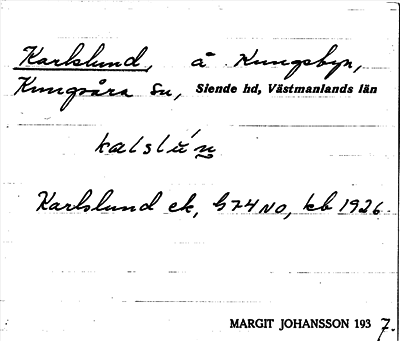 Karlslund, å Kungsbyn,
Kungsåra sn, Siende hd, Västmanlands län
kalslúṉ
Karlslund ek, G74NO, kb 1926.
MARGIT JOHANSSON 1937.